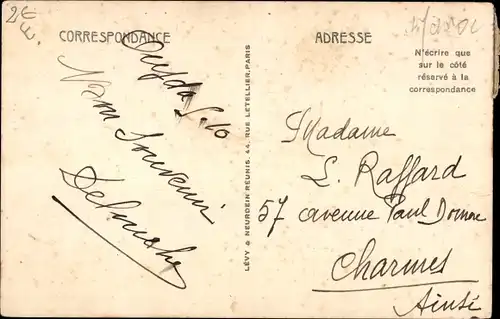 2€
CORRESPONDANCE
Oujda 5.10
Souvenir
LÉVY & NEURDEIN RÉUNIS, 44, RUE LETELLIER, PARIS
ADRESSE
N'écrire que
sur le côté
réservé à la
correspondance
Madame
L. Raffard
57 avenue Paul Doumer
Charmes
Aisne